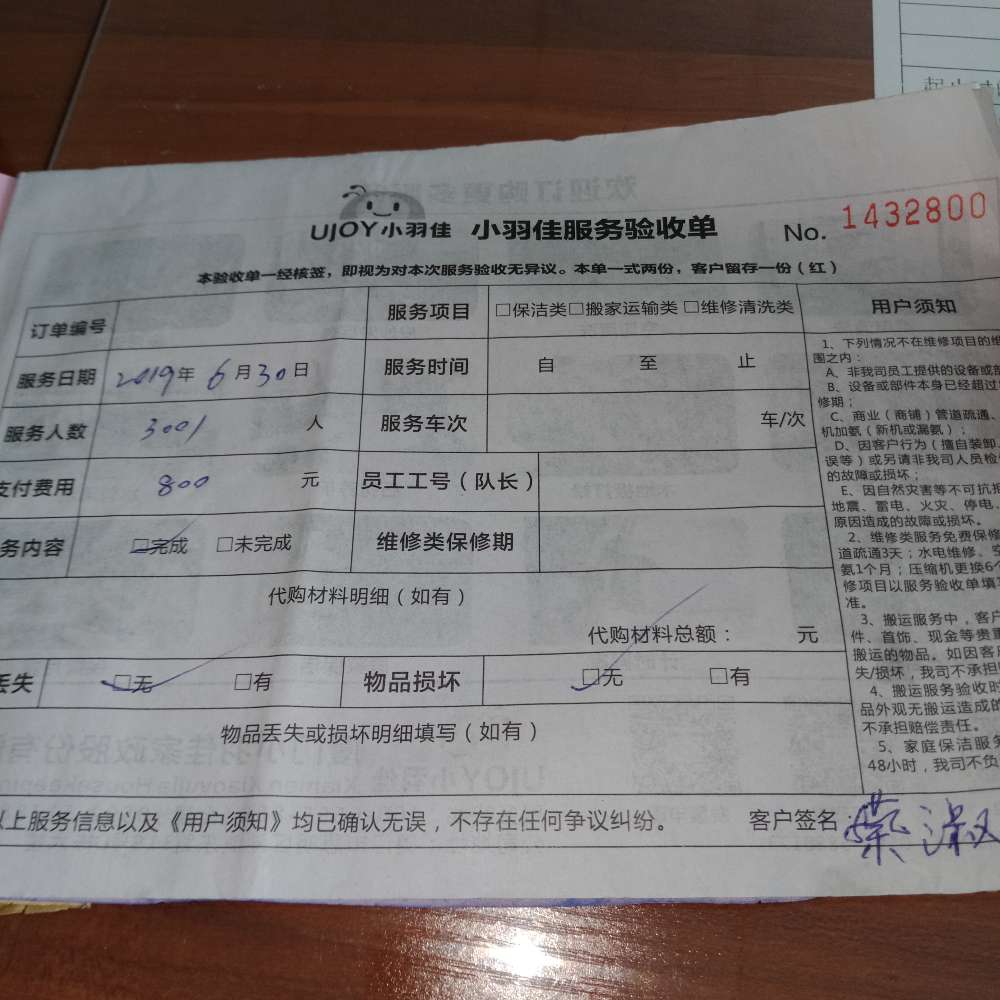 UJOY小羽佳 小羽佳服务验收单 No. 1432800
本验收单一经核签，即视为对本次服务验收无异议。本单一式两份，客户留存一份（红）
订单编号 服务项目 □保洁类□搬家运输类 □维修清洗类
服务日期 2019年 6月30日 服务时间 自 至 止
服务人数 3001 人 服务车次 车/次
支付费用 800 元 员工工号（队长）
务内容 □完成 □未完成 维修类保修期
代购材料明细（如有）
代购材料总额： 元
丢失 □无 □有 物品损坏 □无 □有
物品丢失或损坏明细填写（如有）
以上服务信息以及《用户须知》均已确认无误，不存在任何争议纠纷。 客户签名：
用户须知
1、下列情况不在维修项目的维
围之内：
A、非我司员工提供的设备或部
B、设备或部件本身已经超过
修期；
C、商业（商铺）管道疏通、
机加氨（新机或漏氨）；
D、因客户行为（擅自装卸、
误等）或另请非我司人员检
的故障或损坏；
E、因自然灾害等不可抗拒
地震、雷电、火灾、停电、
原因造成的故障或损坏。
2、维修类服务免费保修
道疏通3天；水电维修、空
氨1个月；压缩机更换6个
修项目以服务验收单填写
准。
3、搬运服务中，客户
件、首饰、现金等贵重
搬运的物品。如因客户
失/损坏，我司不承担
4、搬运服务验收时
品外观无搬运造成的
不承担赔偿责任。
5、家庭保洁服务
48小时，我司不负